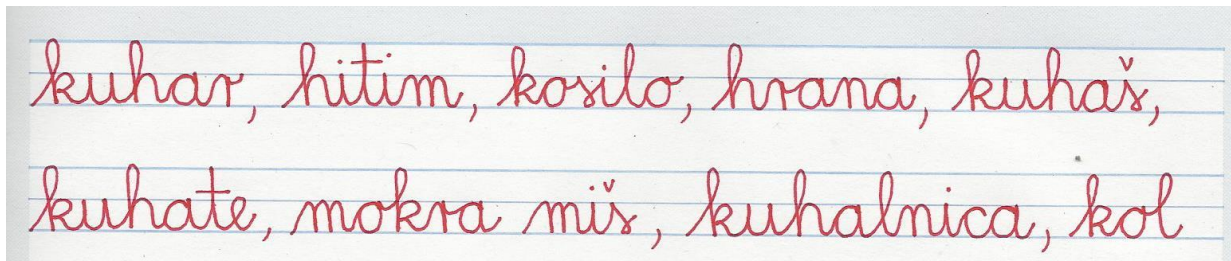 kuhar, hitim, kosilo, hrana, kuhaš,
kuhate, mokra miš, kuhalnica, kol